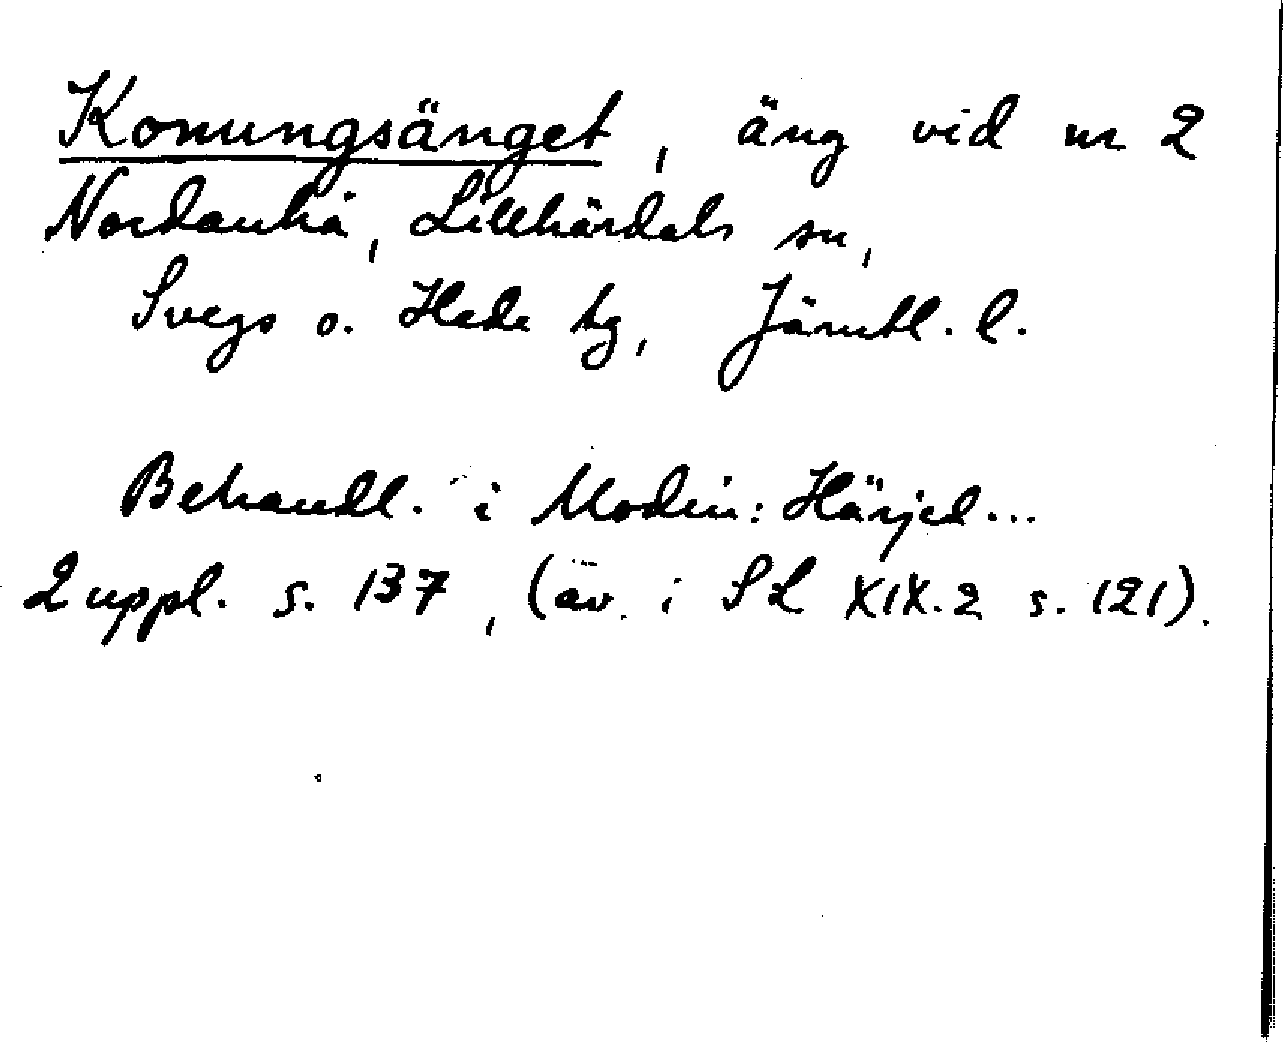 Konungsänget, äng vid nr 2
Nordanhå, Lillhärdals sn,
Svegs o. Hede tg, Jämtl. l.
Behandl. i Modin: Härjed...
2 uppl. s. 137, (äv. i SL XIX.2 s. 121).